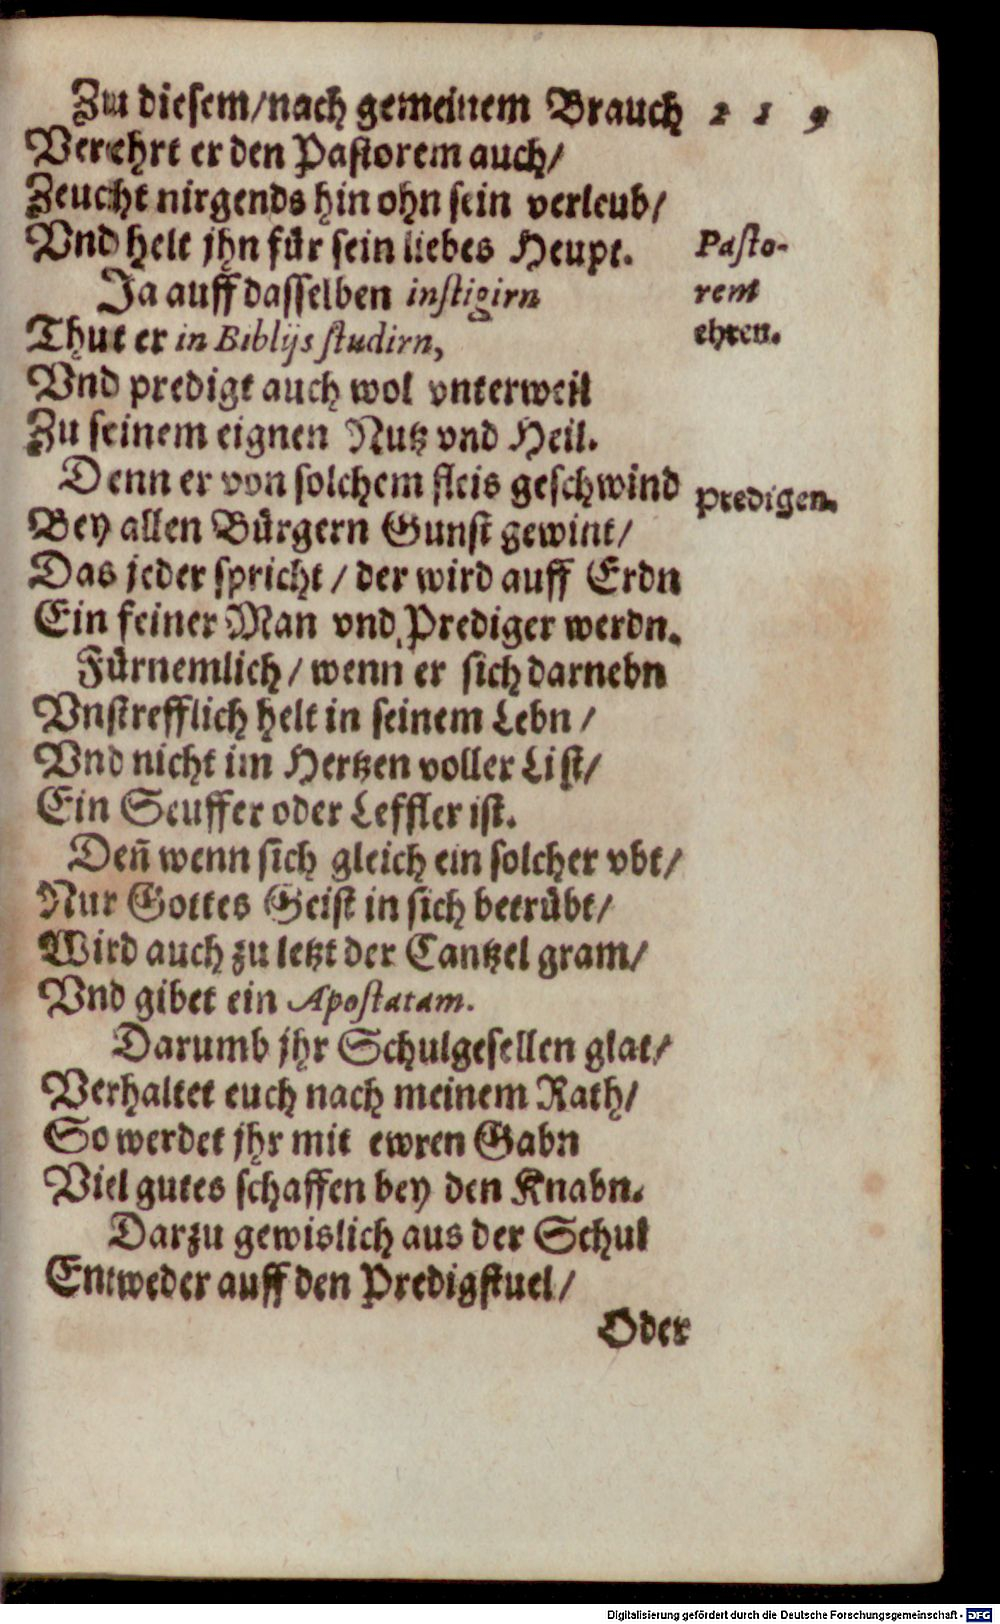 Zu diesem/nach gemeinem Brauch 219
Verehrt er den Pastorem auch/
Zeucht nirgends hin ohn sein verleub/
Vnd helt jhn für sein liebes Heupt.
Pasto-
rem
ehren.
Ja auff dasselben instigirn
Thut er in Biblijs studirn,
Vnd predigt auch wol vnterweil
Zu seinem eignen Nutz vnd Heil.
Denn er von solchem fleis geschwind
predigen.
Bey allen Bürgern Gunst gewint/
Das jeder spricht / der wird auff Erdn
Ein feiner Man vnd Prediger werdn.
Fürnemlich / wenn er sich darnebn
Vnstrefflich helt in seinem Lebn /
Vnd nicht im Hertzen voller List/
Ein Seuffer oder Leffler ist.
Deñ wenn sich gleich ein solcher vbt/
Nur Gottes Geist in sich betrübt/
Wird auch zu letzt der Cantzel gram/
Vnd gibet ein Apostatam.
Darumb jhr Schulgesellen glat/
Verhaltet euch nach meinem Rath/
So werdet jhr mit ewren Gabn
Viel gutes schaffen bey den Knabn.
Darzu gewislich aus der Schul
Entweder auff den Predigstuel/
Oder
Digitalisierung gefördert durch die Deutsche Forschungsgemeinschaft - DFG